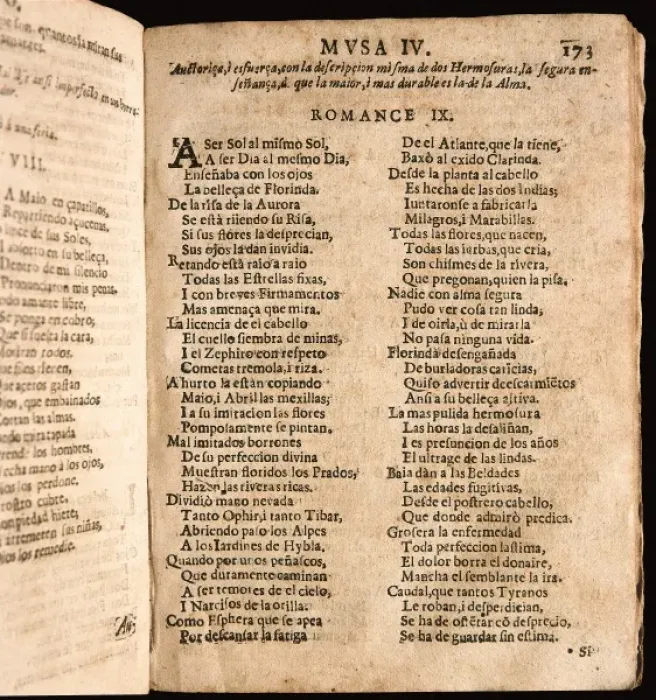 O.
VIII.
A Maio en çapatillos,
Repartiendo açucenas,
de sus Soles,
en su belleça,
Dentro de mi silencio
Pronunciaron mis penas.
libre,
Se ponga en cobro;
Que si suelta la cara,
todos.
gastan
ojos, que embainados
las almas.
los hombres,
mano à los ojos,
los perdone.
las niñas,
MVSA IV.
173
Auctoriça, i esfuerça, con la descripcion misma de dos Hermosuras, la segura en-
señança, d que la maior, i mas durable es la de la Alma.
ROMANCE IX.
A Ser Sol al mismo Sol,
A ser Dia al mesmo Dia,
Enseñaba con los ojos
La belleça de Florinda.
De la risa de la Aurora
Se està riiendo su Risa,
Si sus flores la desprecian,
Sus ojos la dan invidia.
Retando està raio a raio
Todas las Estrellas fixas,
I con breves Firmamentos
Mas amenaça que mira.
La licencia de el cabello
El cuello siembra de minas,
I el Zephiro con respeto
Cometas tremola, i riza.
A hurto la estàn copiando
Maio, i Abril las mexillas;
I a su imitacion las flores
Pomposamente se pintan.
Mal imitados borrones
De su perfeccion divina
Muestran floridos los Prados,
Hazen las riveras ricas.
Dividiò mano nevada
Tanto Ophir, i tanto Tibar,
Abriendo paso los Alpes
A los Iardines de Hybla.
Quando por unos peñascos,
Que duramente caminan
A ser temores de el cielo,
I Narcisos de la orilla.
Como Esphera que se apea
Por descansar la fatiga
De el Atlante, que la tiene,
Baxò al exido Clarinda.
Desde la planta al cabello
Es hecha de las dos Indias;
Iuntaronse a fabricarla
Milagros, i Marabillas.
Todas las flores, que nacen,
Todas las ierbas, que cria,
Son chismes de la rivera,
Que pregonan, quien la pisa.
Nadie con alma segura
Pudo ver cosa tan linda;
I de oirla, ù de mirarla
No pasa ninguna vida.
Florinda desengañada
De burladoras caricias,
Quiso advertir d̄ escarmiẽtos
Ansi a su belleça altiva.
La mas pulida hermosura
Las horas la desaliñan,
I es presuncion de los años
El ultrage de las lindas.
Baia dàn a las Beldades
Las edades fugitivas,
Desde el postrero cabello,
Que donde admirò predica.
Grosera la enfermedad
Toda perfeccion lastima,
El dolor borra el donaire,
Mancha el semblante la ira.
Caudal, que tantos Tyranos
Le roban, i desperdician,
Se ha de ostẽtar cō desprecio,
Se ha de guardar sin estima.
Si